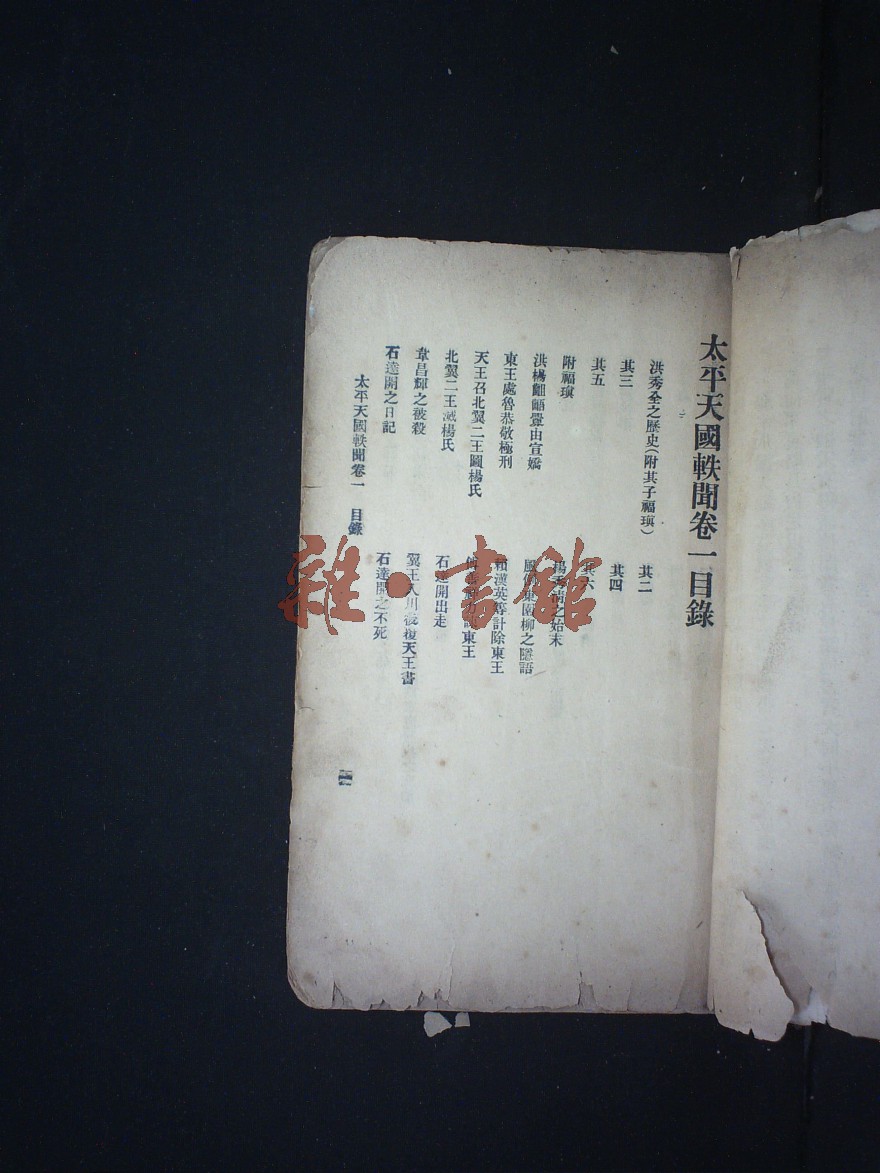 太平天國軼聞卷一目錄
洪秀全之歷史(附其子福瑱)
其二
其三
其四
其五
其六
附福瑱
楊秀清之始末
洪楊齟齬釁由宣嬌
風的東園柳之隱語
東王處魯恭敬極刑
賴漢英等計除東王
天王召北翼二王圖楊氏
東王
北翼二王滅楊氏
石達開出走
韋昌輝之被殺
翼王入川後復天王書
石達開之日記
石達開之不死
太平天國軼聞卷一 目錄
一
雜·書館